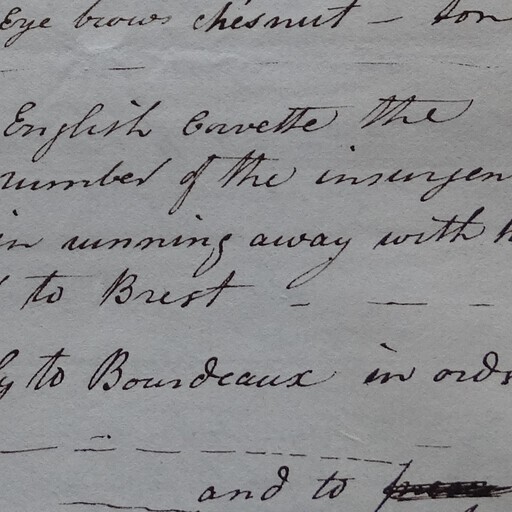 Eye brows chesnut - ton
English Corvette the
number of the insurgen
in running away with h
to Brest - — -
ly to Bourdeaux in ord
and to